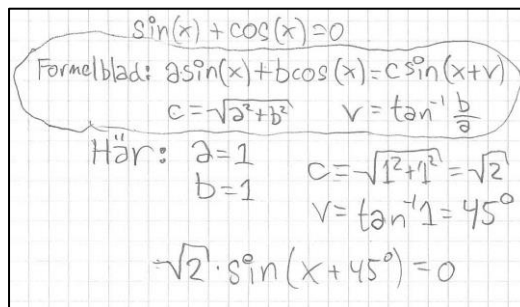 sin(x) + cos(x) = 0
Formelblad: a sin(x) + b cos(x) = c sin(x+v)
c = √(a²+b²) v = tan⁻¹ b/a
Här: a = 1
b = 1
c = √(1²+1²) = √2
v = tan⁻¹ 1 = 45°
√2 · sin(x + 45°) = 0